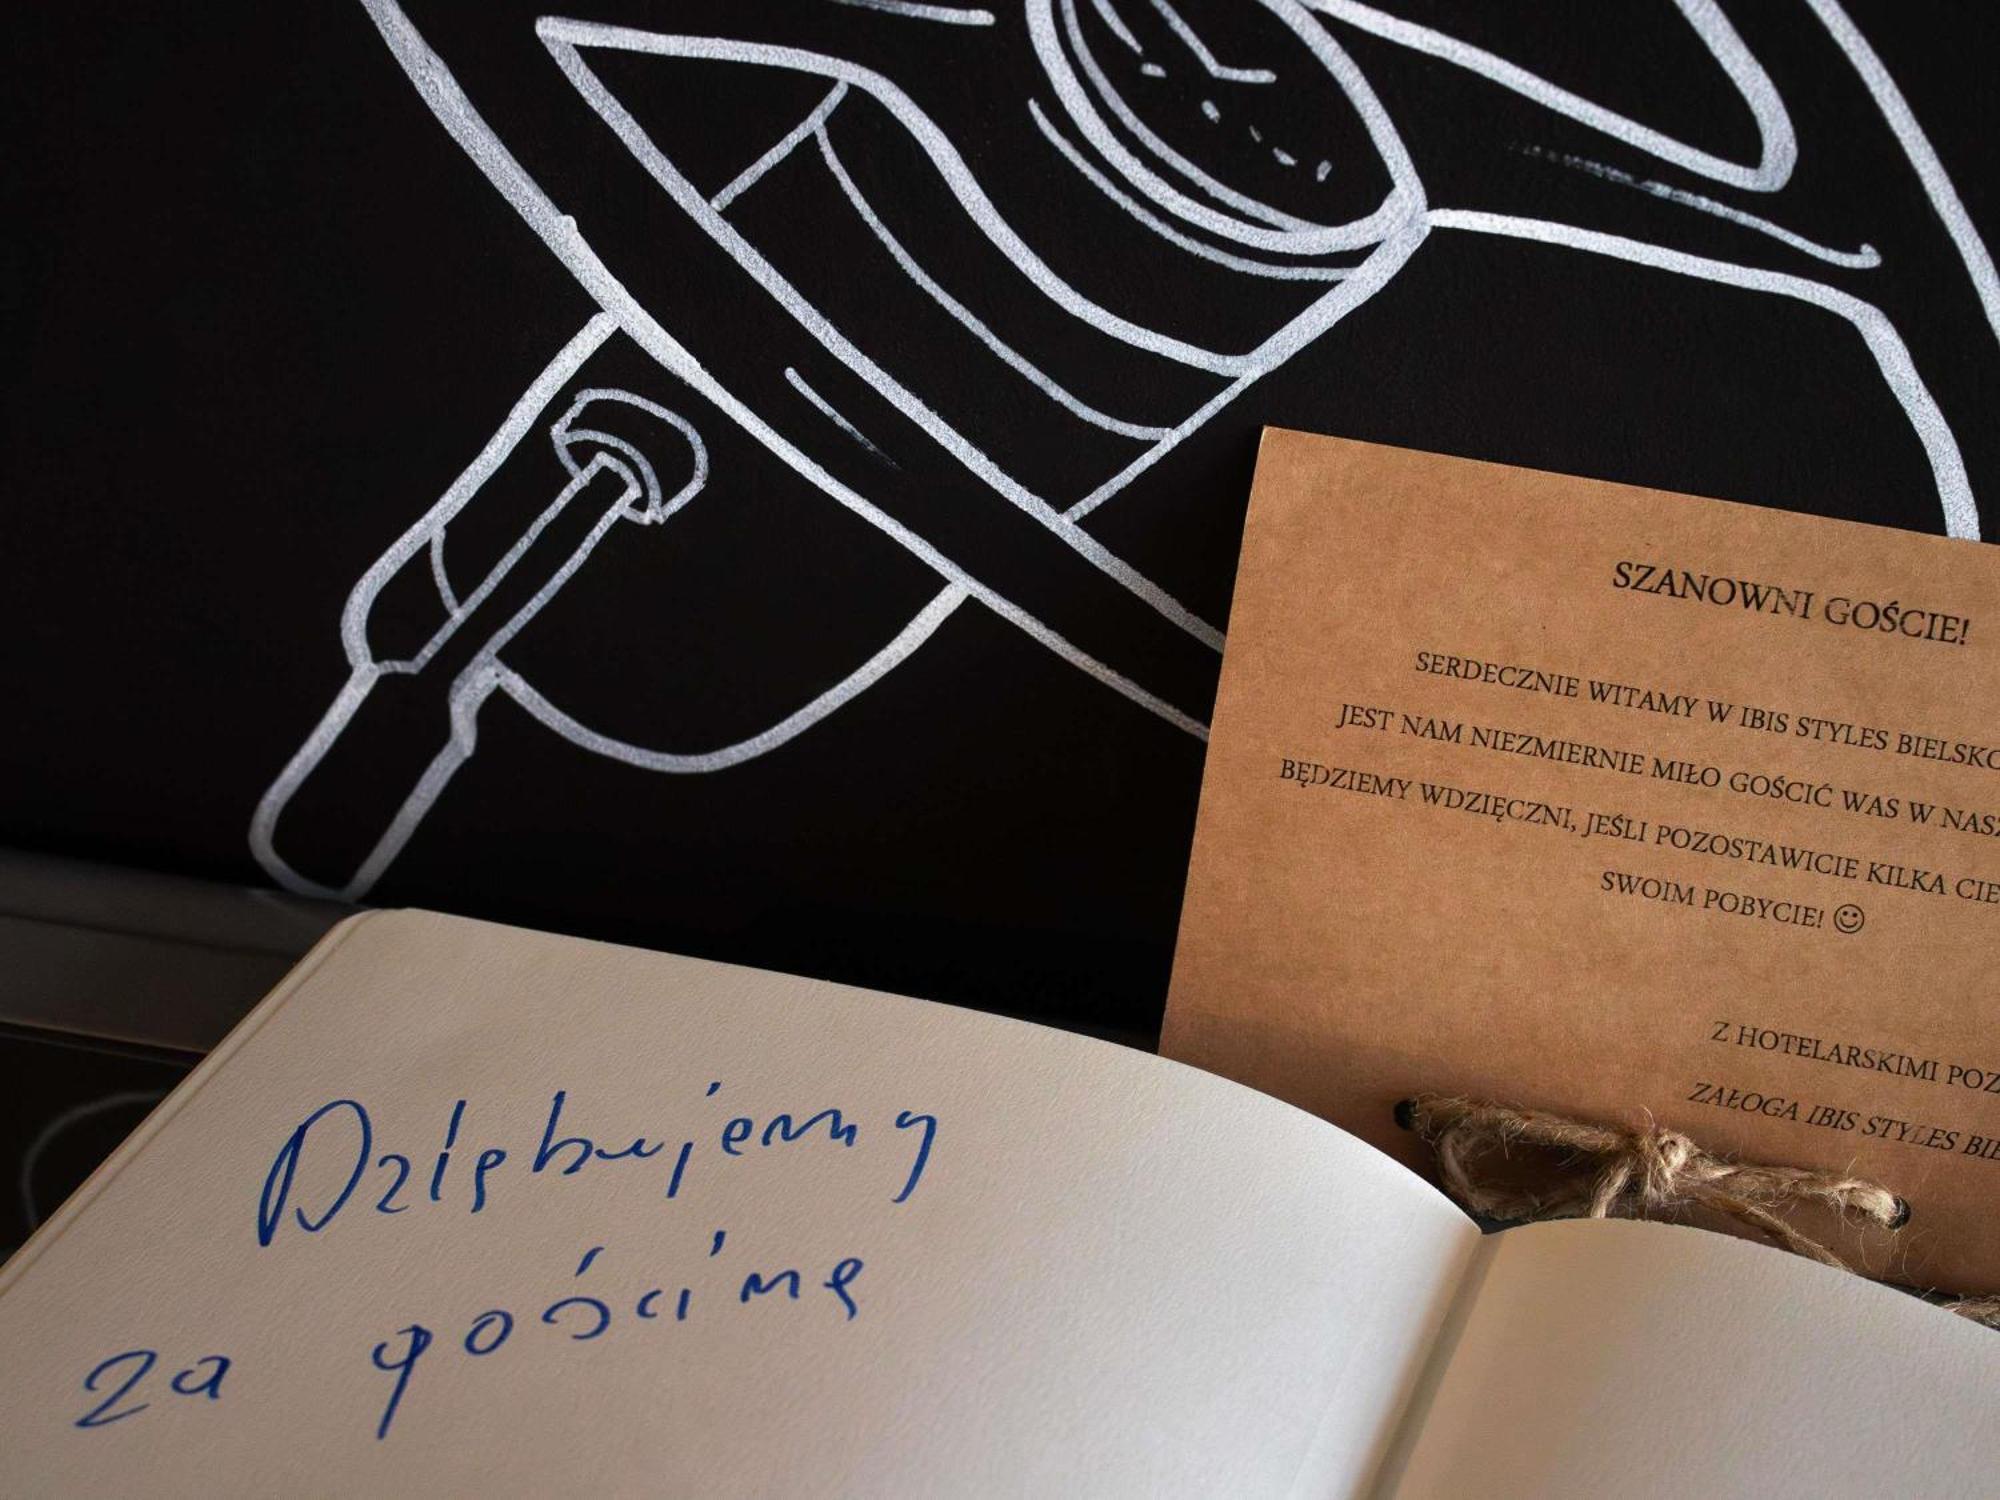 SZANOWNI GOŚCIE!
SERDECZNIE WITAMY W IBIS STYLES BIELSKO
JEST NAM NIEZMIERNIE MIŁO GOŚCIĆ WAS W NASZ
BĘDZIEMY WDZIĘCZNI, JEŚLI POZOSTAWICIE KILKA CIE
SWOIM POBYCIE! ☺
Z HOTELARSKIMI POZ
ZAŁOGA IBIS STYLES BIE
Dziękujemy
za gościnę